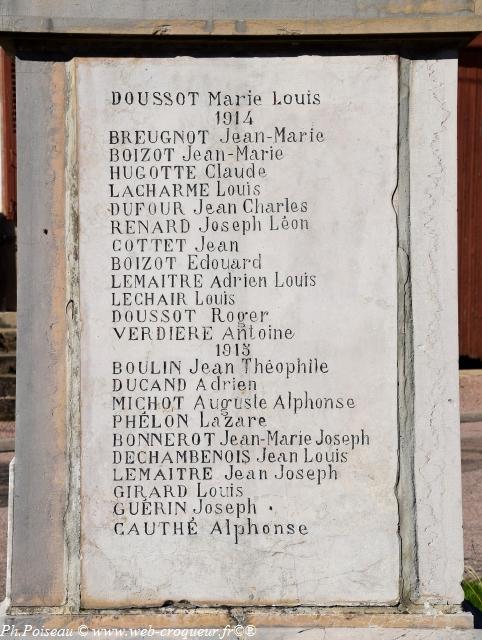 DOUSSOT Marie Louis
1914
BREUGNOT Jean-Marie
BOIZOT Jean-Marie
HUGOTTE Claude
LACHARME Louis
DUFOUR Jean Charles
RENARD Joseph Léon
COTTET Jean
BOIZOT Edouard
LEMAITRE Adrien Louis
LECHAIR Louis
DOUSSOT Roger
VERDIERE Antoine
1915
BOULIN Jean Théophile
DUCAND Adrien
MICHOT Auguste Alphonse
PHÉLON Lazare
BONNEROT Jean-Marie Joseph
DECHAMBENOIS Jean Louis
LEMAITRE Jean Joseph
GIRARD Louis
GUÉRIN Joseph
CAUTHÉ Alphonse
Ph.Poiseau © www.web-croqueur.fr©®